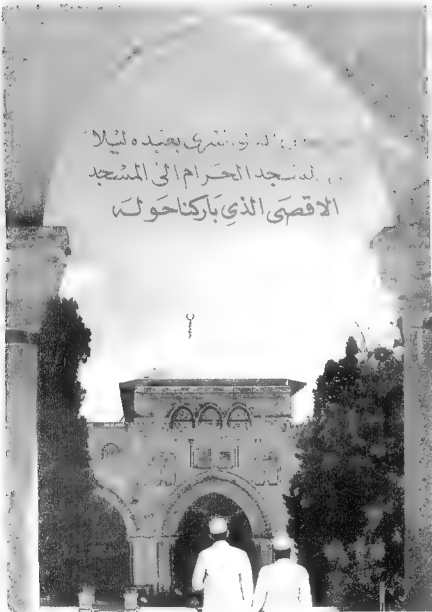 اسرى بعبده ليلا
المسجد الحرام الى المسجد
الاقصى الذي باركنا حوله